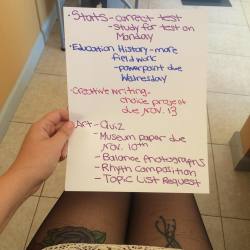 • Stats - correct test
- study for test on
Monday
• Education History - more
field work
- powerpoint due
Wednesday
• Creative writing -
choice project
due Nov. 13
• Art - Quiz
- Museum paper due
Nov. 10th
- Balance Photographs
- Rhyth Composition
- Topic List Request